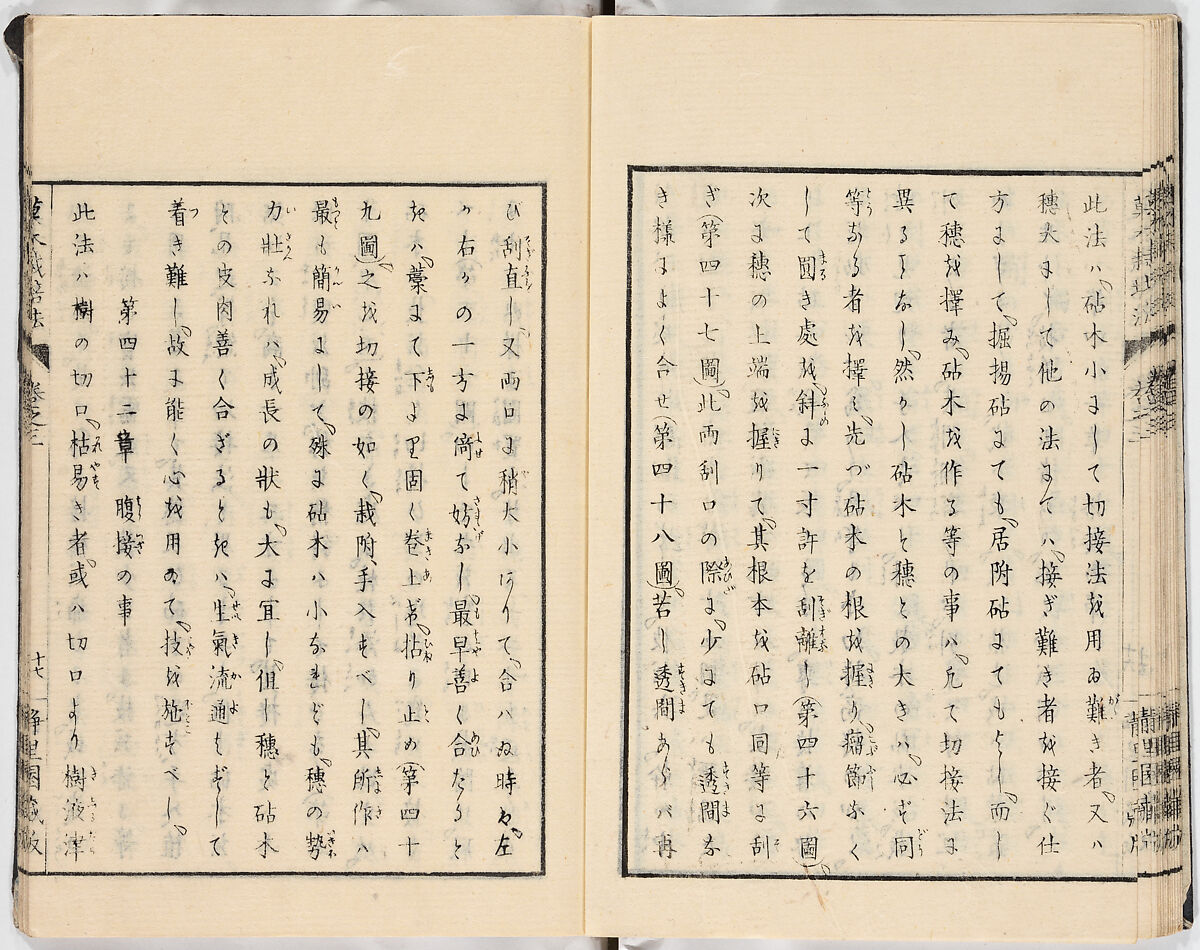 此法ハ、砧木小まして切接法を用ゐ難き者、又ハ
穂大まして他の法まてハ、接ぎ難き者を接ぐ仕
方まして、掘揚砧まても、居附砧まてもよし、而し
て穂を擇み、砧木を作る等の事ハ、凡て切接法ま
異ることなし、然かし砧木と穂との大きハ、必ず同
等なる者を擇ミ、先づ砧木の根を握り、瘤節なく
して圓き處を、斜ま一寸許を刮離し(第四十六圖)
次ま穂の上端を握りて、其根本を砧口同等ま刮
ぎ(第四十七圖)此両刮口の際ま、少まても透間な
き様まよく合せ(第四十八圖)若し透間あらバ再
び刮直し、又両口ま稍大小ありて、合ハぬ時ハ、左
か右かの一方ま倚て妨なし、最早善く合たると
きハ、藁まて下より固く卷上ゲ、拈り止め(第四十
九圖)之を切接の如く、栽附、手入すべし、其所作ハ
最も簡易まして、殊ま砧木ハ小なれども、穂の勢
力壮なれハ、成長の狀も、大ま宜し、但し穂と砧木
との皮肉善く合ざるときハ、生氣流通せずして
着き難し、故ま能く心を用ゐて、技を施すべし、
第四十二章 腹接の事
此法ハ樹の切口、枯易き者、或ハ切口より樹液津
卷之三
十七
静里園藏版